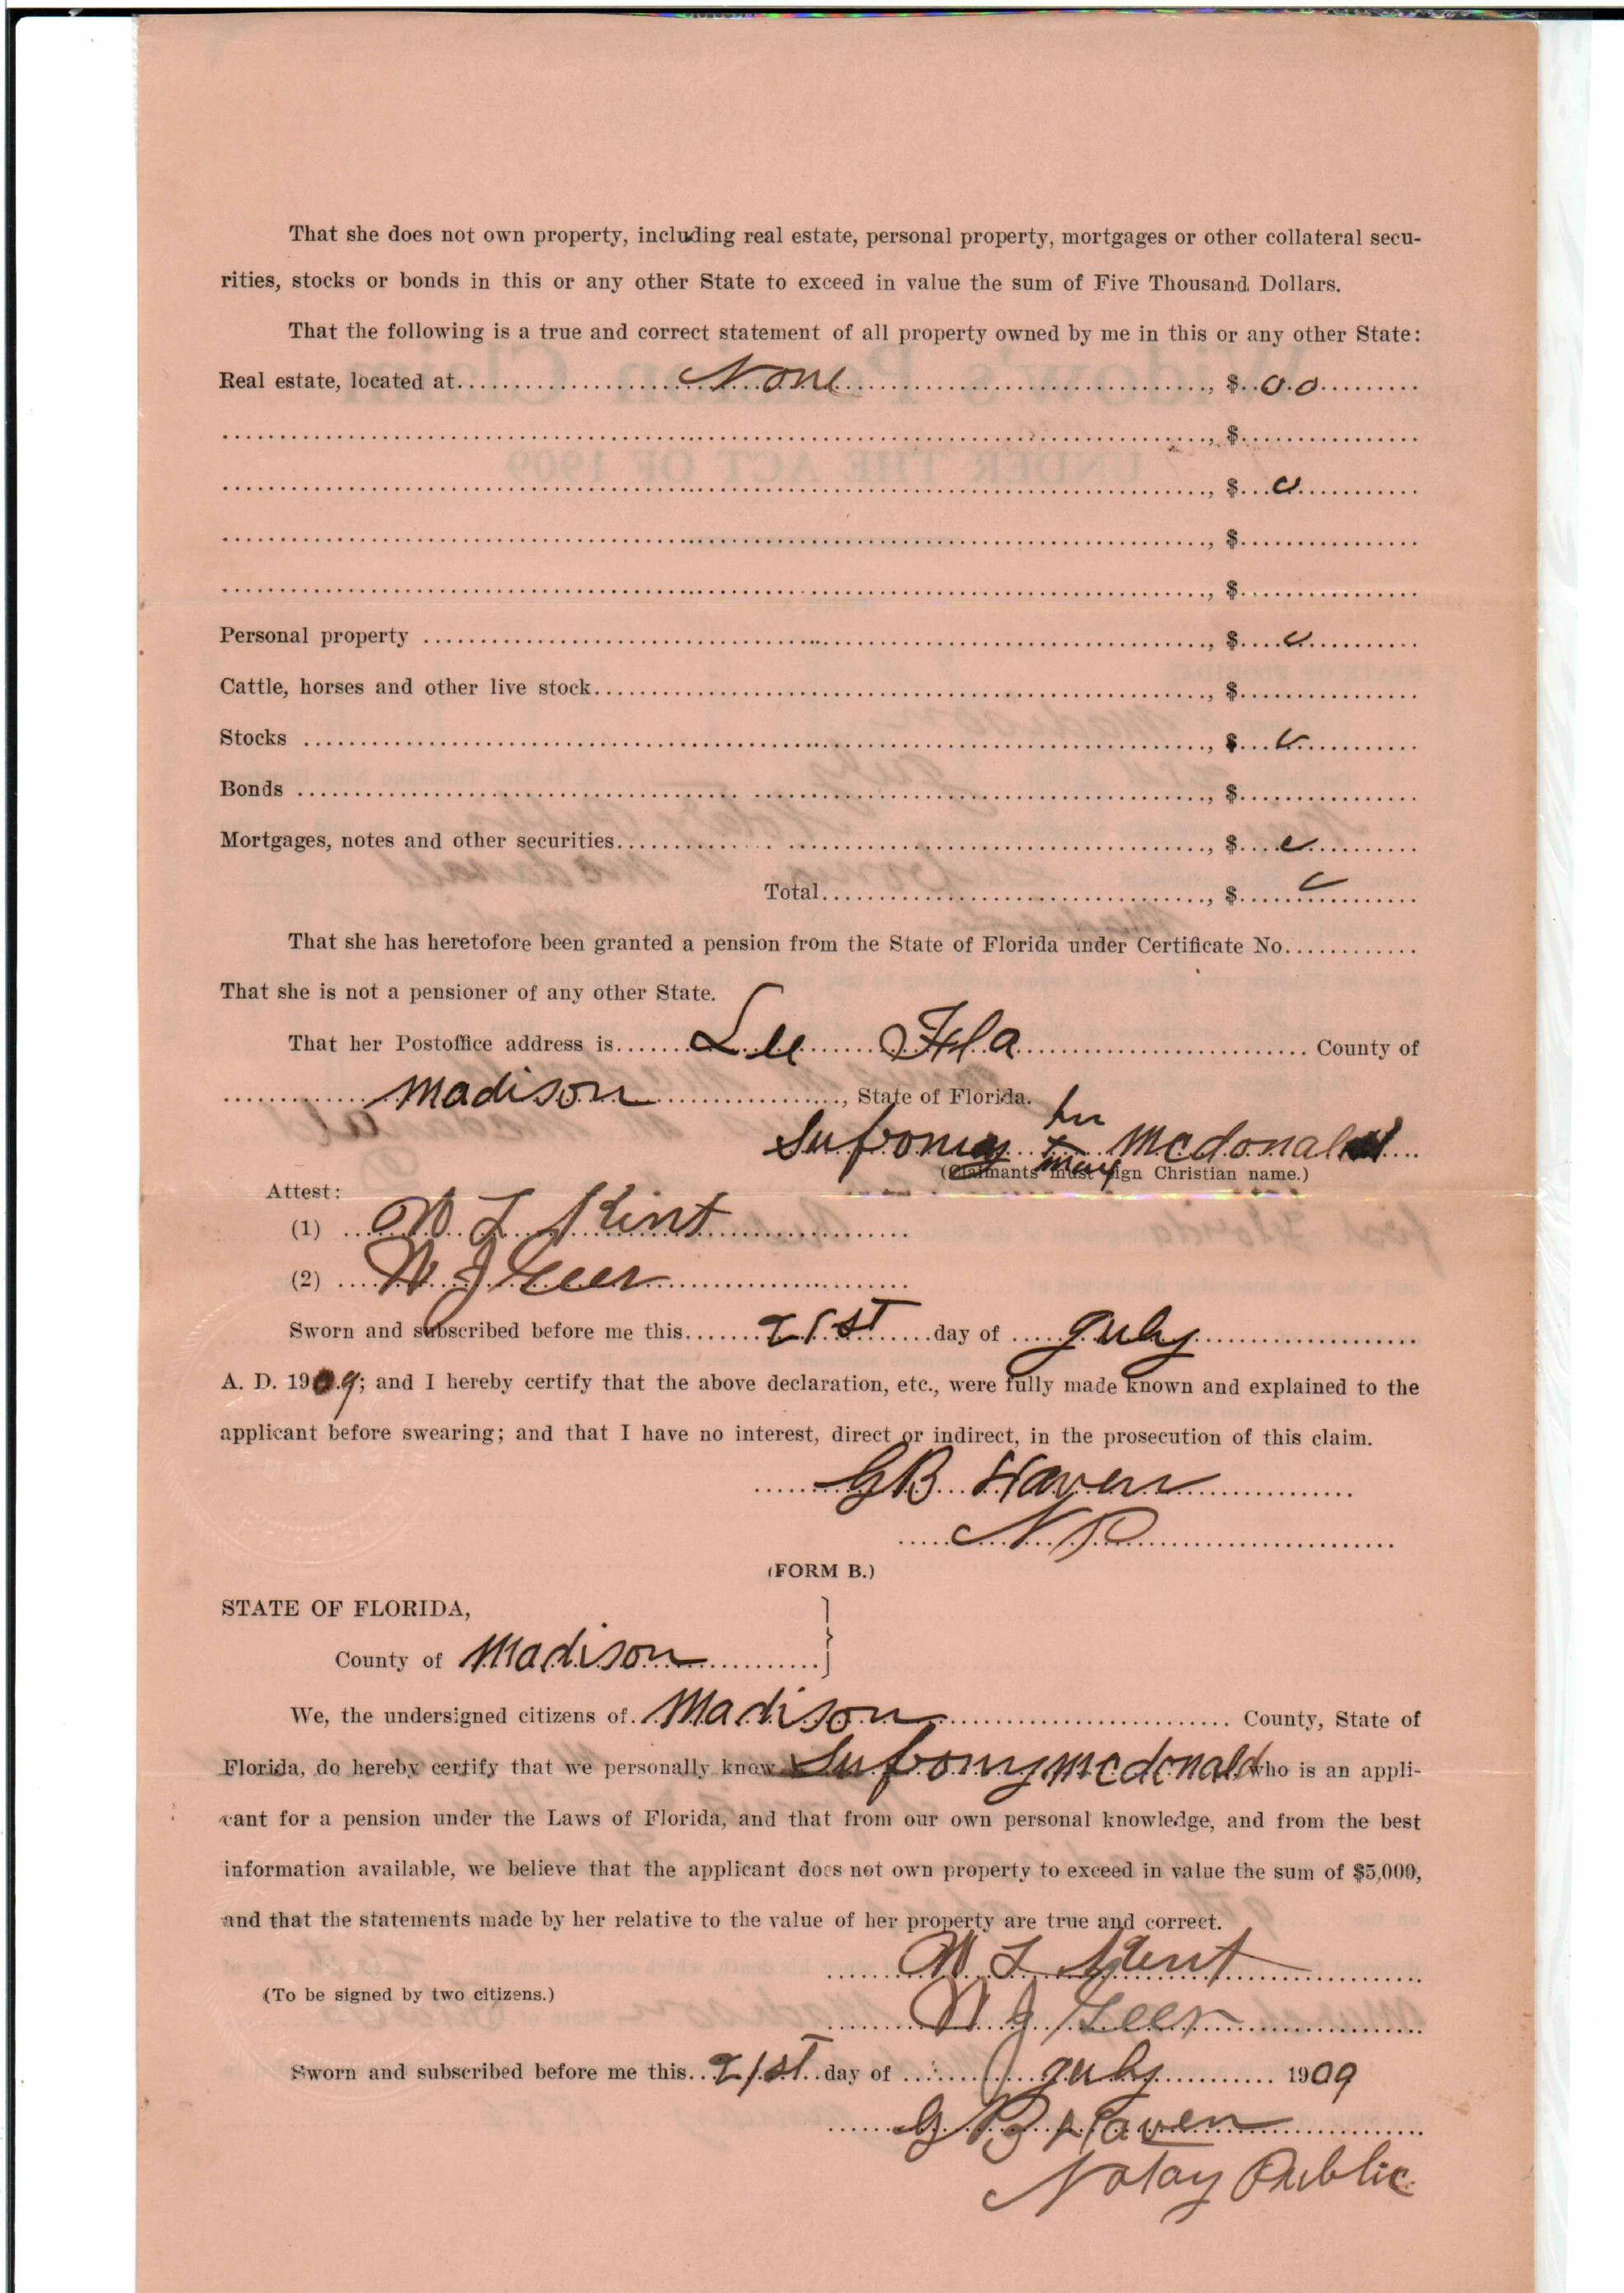 That she does not own property, including real estate, personal property, mortgages or other collateral secu-
rities, stocks or bonds in this or any other State to exceed in value the sum of Five Thousand Dollars.
That the following is a true and correct statement of all property owned by me in this or any other State:
Real estate, located at None, $ 0.0
, $
, $ 0
, $
, $
Personal property, $ 0
Cattle, horses and other live stock, $
Stocks, $
Bonds, $
Mortgages, notes and other securities, $
Total, $
That she has heretofore been granted a pension from the State of Florida under Certificate No.
That she is not a pensioner of any other State.
That her Postoffice address is Lee Fla County of
Madison, State of Florida.
her
Sufrony x Mcdonald
mark
(Claimants must sign Christian name.)
Attest:
(1) W. L. Kent
(2) N J Geer
Sworn and subscribed before me this 21st day of July
A. D. 1909; and I hereby certify that the above declaration, etc., were fully made known and explained to the
applicant before swearing; and that I have no interest, direct or indirect, in the prosecution of this claim.
G B Haven
N P
(FORM B.)
STATE OF FLORIDA,
County of Madison
We, the undersigned citizens of Madison County, State of
Florida, do hereby certify that we personally know Sufrony mcdonald who is an appli-
cant for a pension under the Laws of Florida, and that from our own personal knowledge, and from the best
information available, we believe that the applicant does not own property to exceed in value the sum of $5,000,
and that the statements made by her relative to the value of her property are true and correct.
W L Kent
(To be signed by two citizens.)
N J Geer
Sworn and subscribed before me this 21st day of July 1909
G B Haven
Notay Public